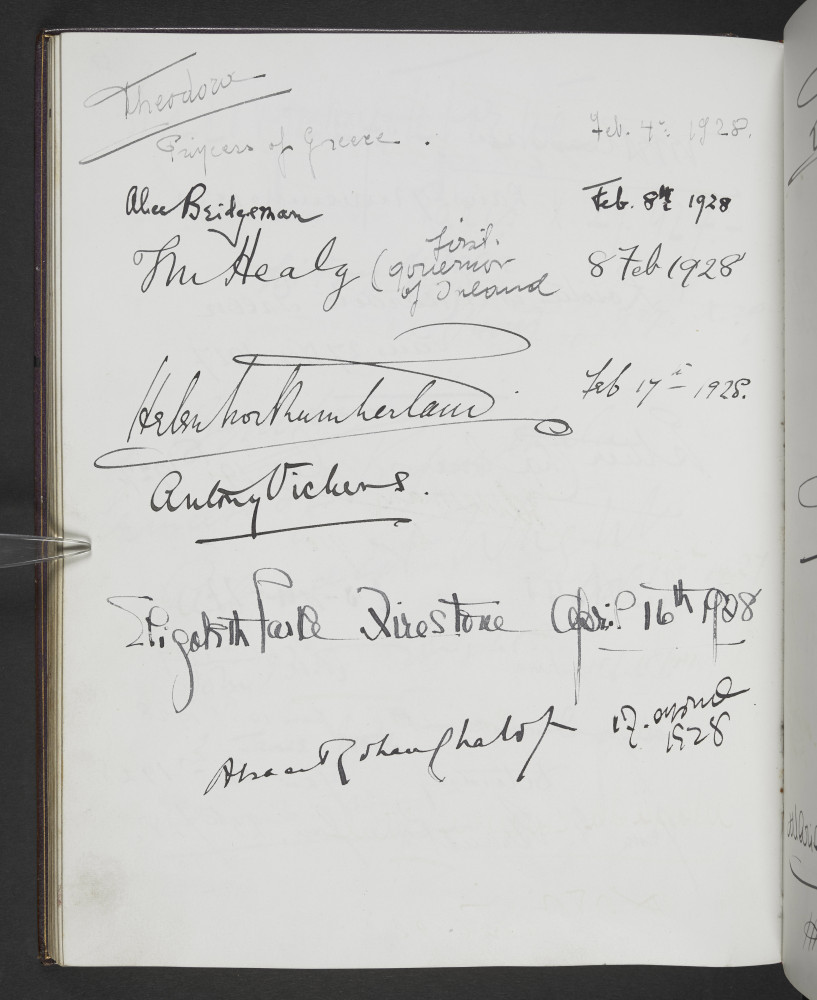 Theodora
Princess of Greece. Feb. 4th 1928.
Alice Bridgeman Feb. 8th 1928
T M Healy (first. governor of Ireland 8 Feb 1928
Helen Northumberland Feb 17th 1928.
Antony Vickers.
Elizabeth Parke Firestone April 16th 1928
Rohan Chabot 17. 1928